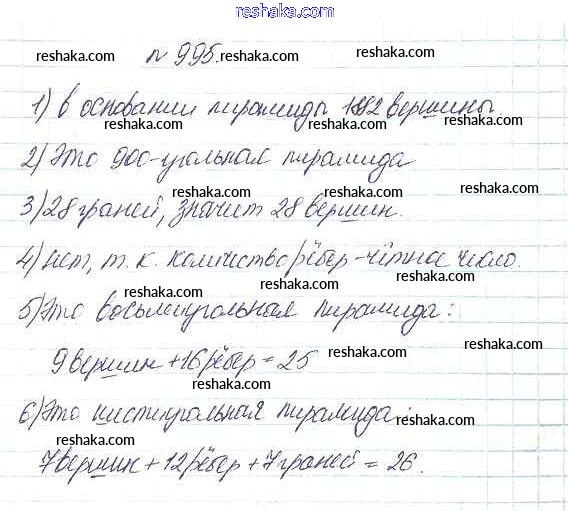 www.reshaka.com
reshaka.com reshaka.com reshaka.com
№ 995.
1) в основании пирамиды 182 вершины
reshaka.com reshaka.com
2) Это 900-угольная пирамида
reshaka.com reshaka.com
3) 28 граней, значит 28 вершин.
reshaka.com reshaka.com
4) нет, т. к. количество рёбер - чётное число.
reshaka.com reshaka.com
5) Это восьмиугольная пирамида:
reshaka.com
9 вершин + 16 рёбер = 25
reshaka.com reshaka.com
6) Это шестиугольная пирамида:
reshaka.com reshaka.com
7 вершин + 12 рёбер + 7 граней = 26.
reshaka.com reshaka.com